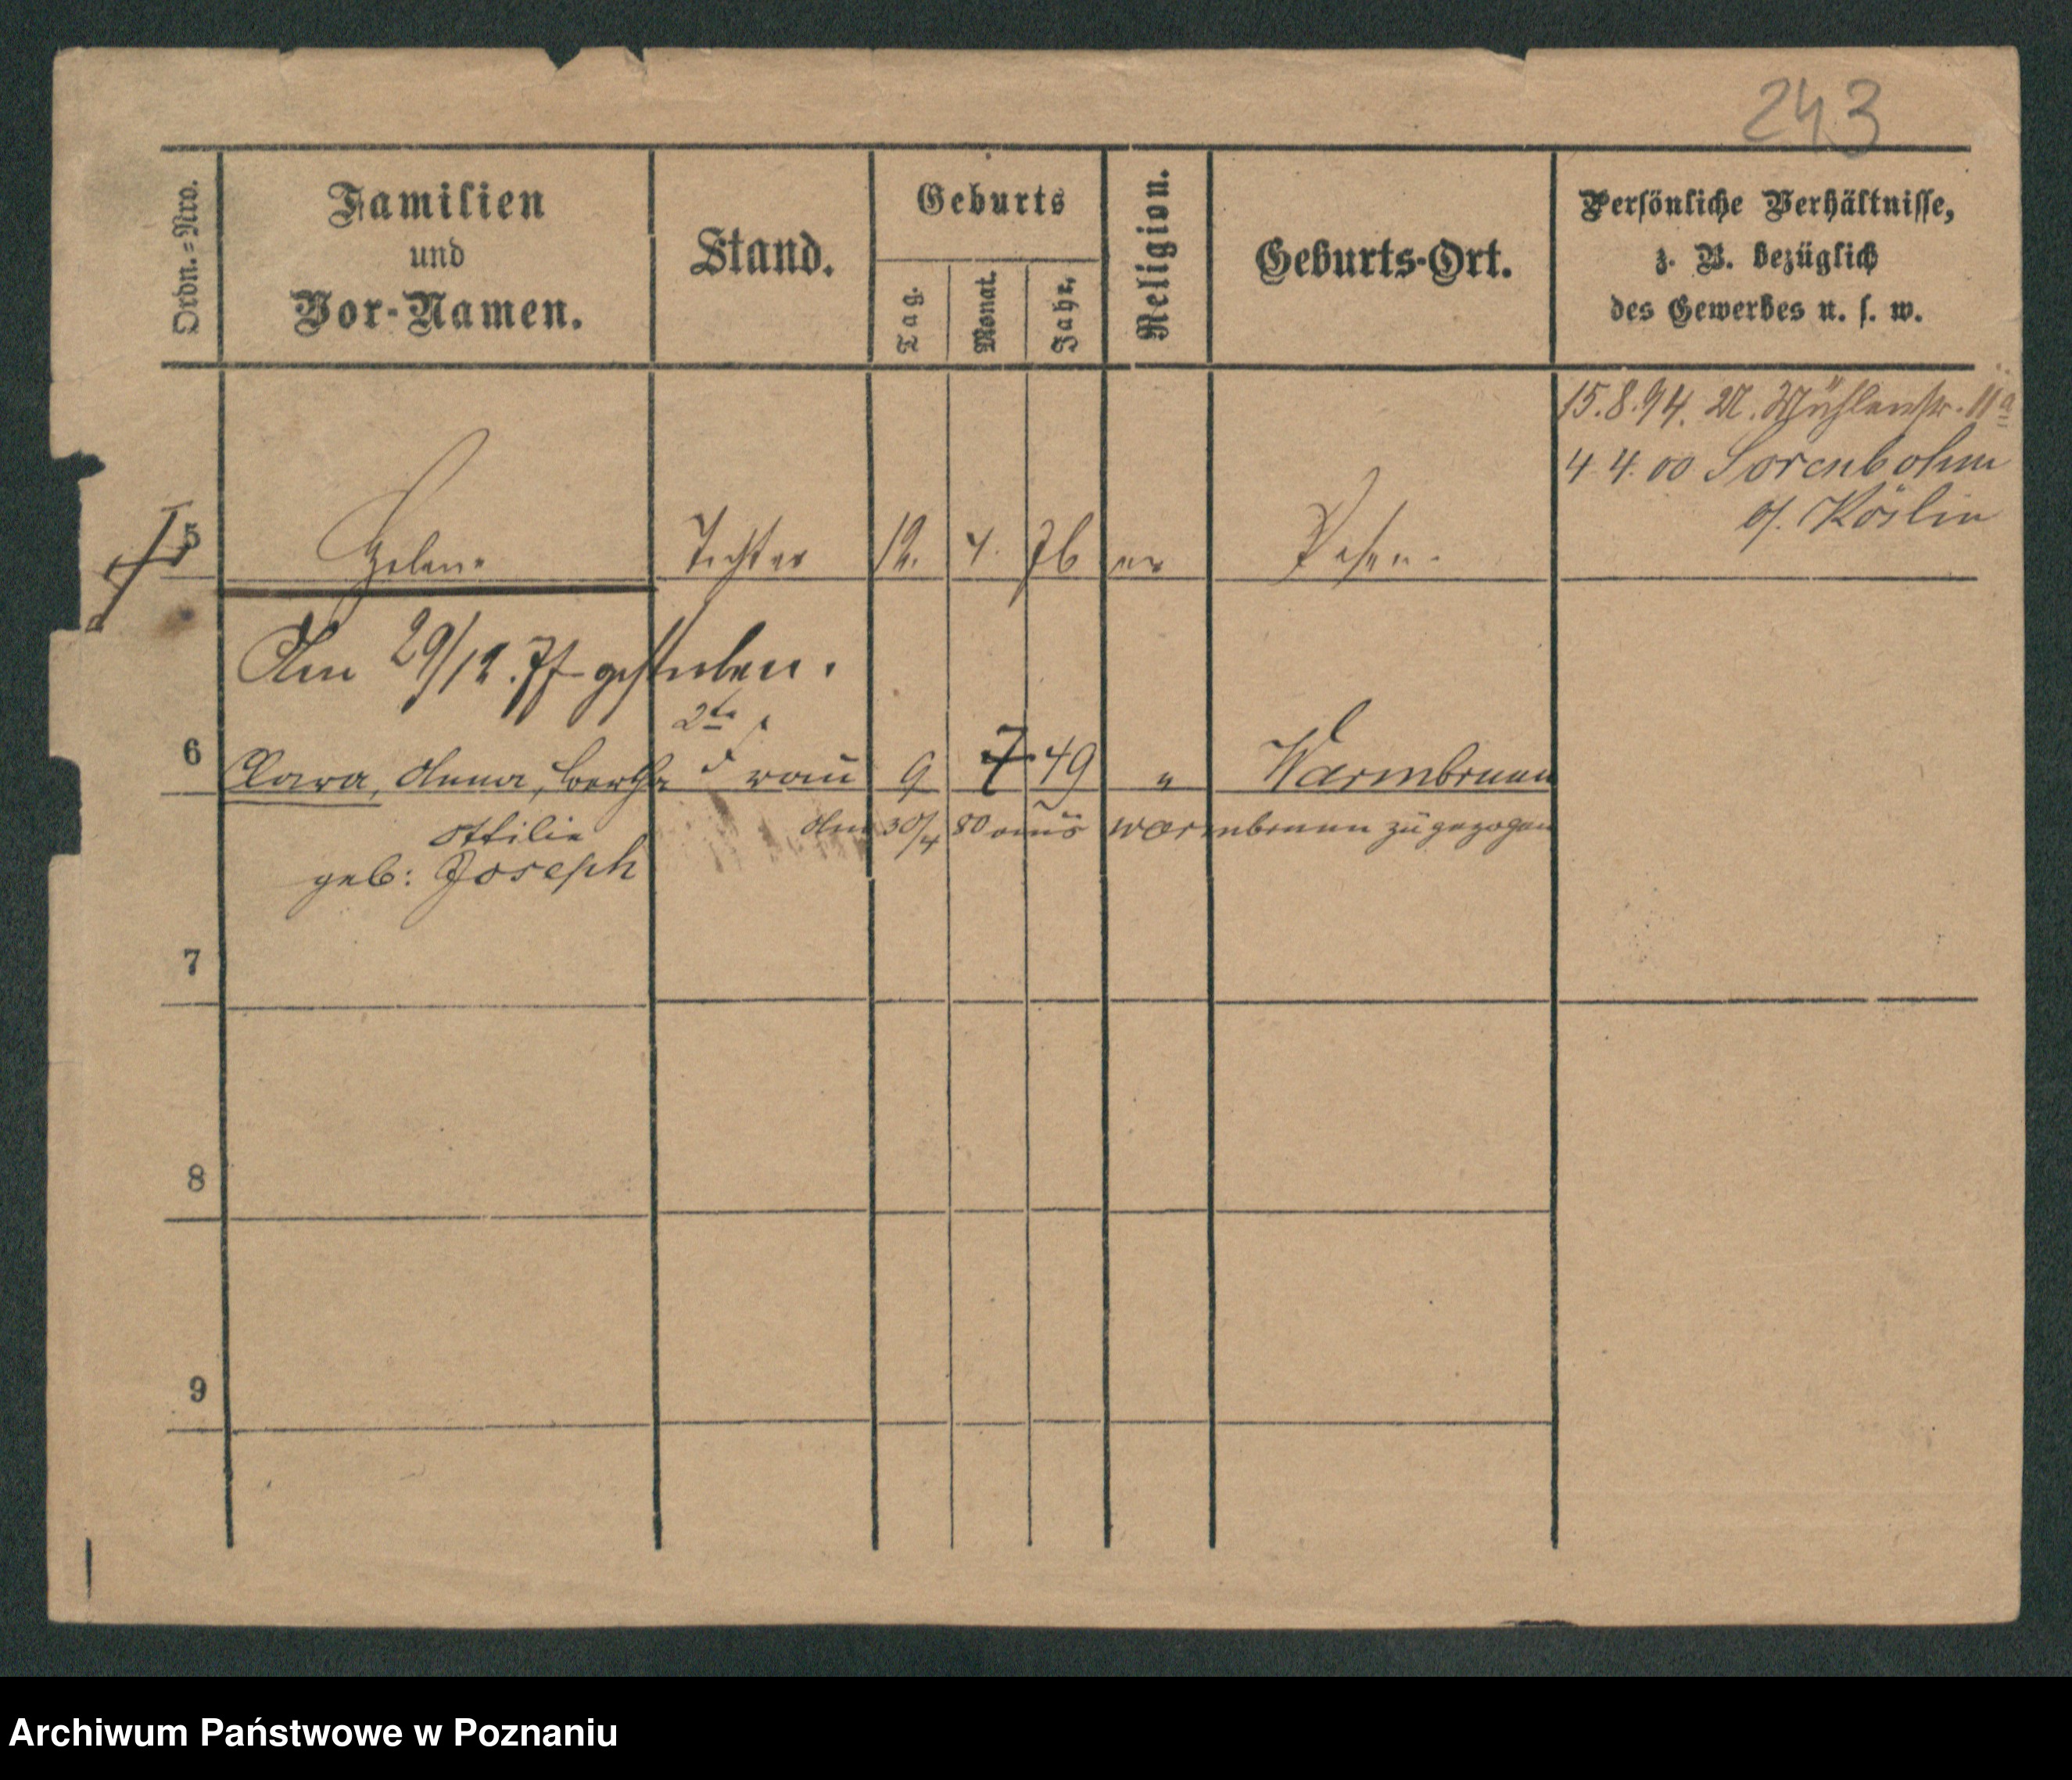 243
Ordn.=Nro.
Familien
und
Vor-Namen.
Stand.
Geburts
Tag.
Monat.
Jahr.
Religion.
Geburts-Ort.
Persönliche Verhältnisse,
z. B. bezüglich
des Gewerbes u. s. w.
15.8.94. N. Mühlenstr. 11a
4. 4. 00 Sorenbohm
Köslin
5 Helene Tochter 12. 4. 76 ev Posen.
Am 29/12. 77 gestorben.
2te
6 Clara, Anna, Bertha Frau 9 7 49 " Warmbrunn
Ottilie
Am 30/4 80 aus Warmbrunn zugezogen
geb: Joseph
7
8
9
Archiwum Państwowe w Poznaniu